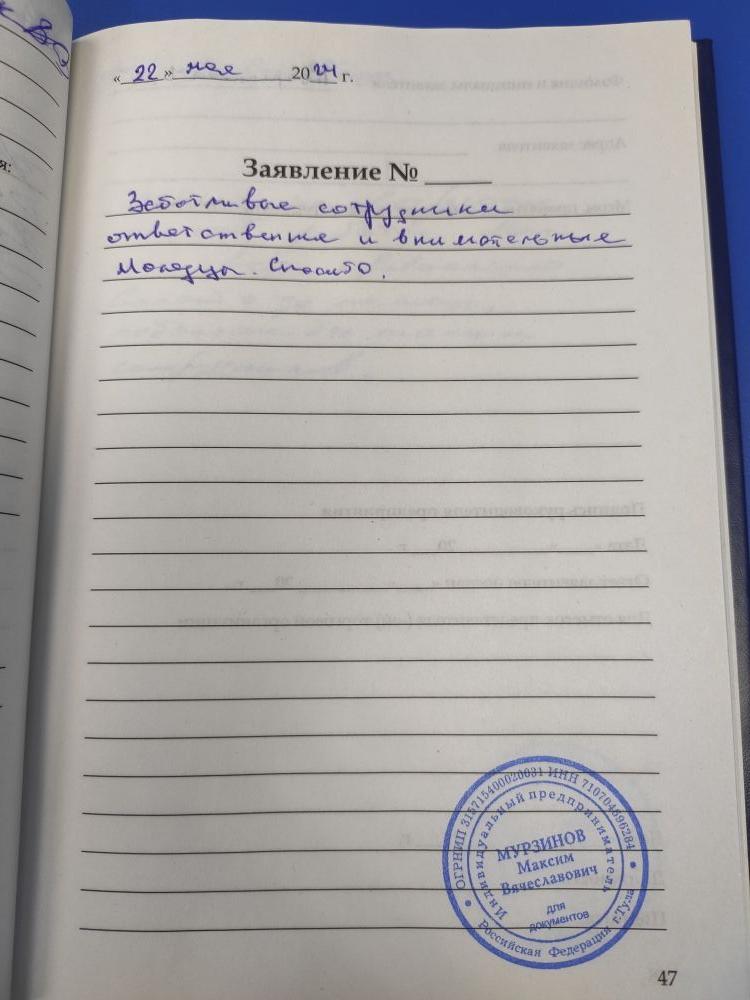 « 22 » мая 2024 г.
Заявление № ____
Заботливые сотрудники
ответственные и внимательные
Молодцы. Спасибо.
ОГРНИП 315715400020031 ИНН 710704596284
Индивидуальный предприниматель
МУРЗИНОВ
Максим
Вячеславович
для
документов
Российская Федерация г.Тула
47